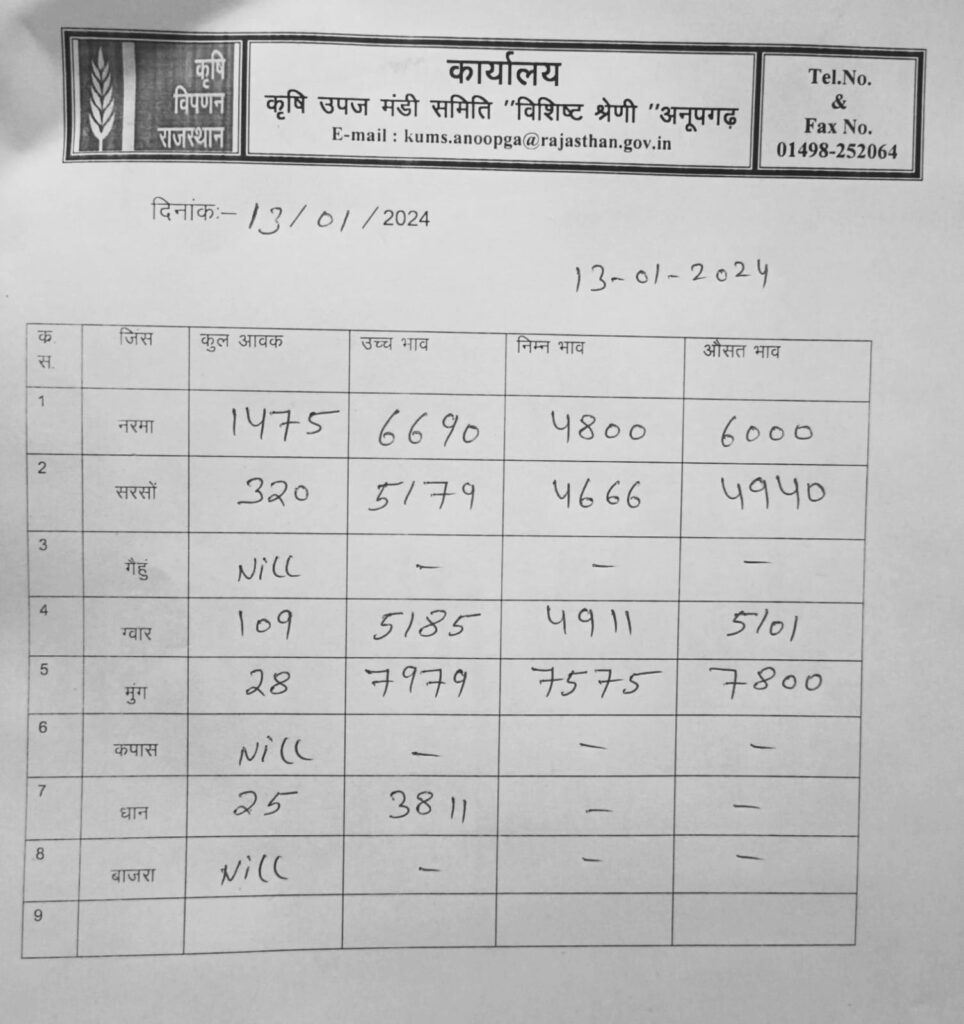 कृषि
विपणन
राजस्थान
कार्यालय
कृषि उपज मंडी समिति "विशिष्ट श्रेणी "अनूपगढ़
E-mail : kums.anoopga@rajasthan.gov.in
Tel.No.
&
Fax No.
01498-252064
दिनांकः– 13/01/2024
13-01-2024
क. स. जिंस कुल आवक उच्च भाव निम्न भाव औसत भाव
1 नरमा 1475 6690 4800 6000
2 सरसों 320 5179 4666 4940
3 गैहुं Nill – – –
4 ग्वार 109 5185 4911 5101
5 मुंग 28 7979 7575 7800
6 कपास Nill – – –
7 धान 25 3811 – –
8 बाजरा Nill – – –
9